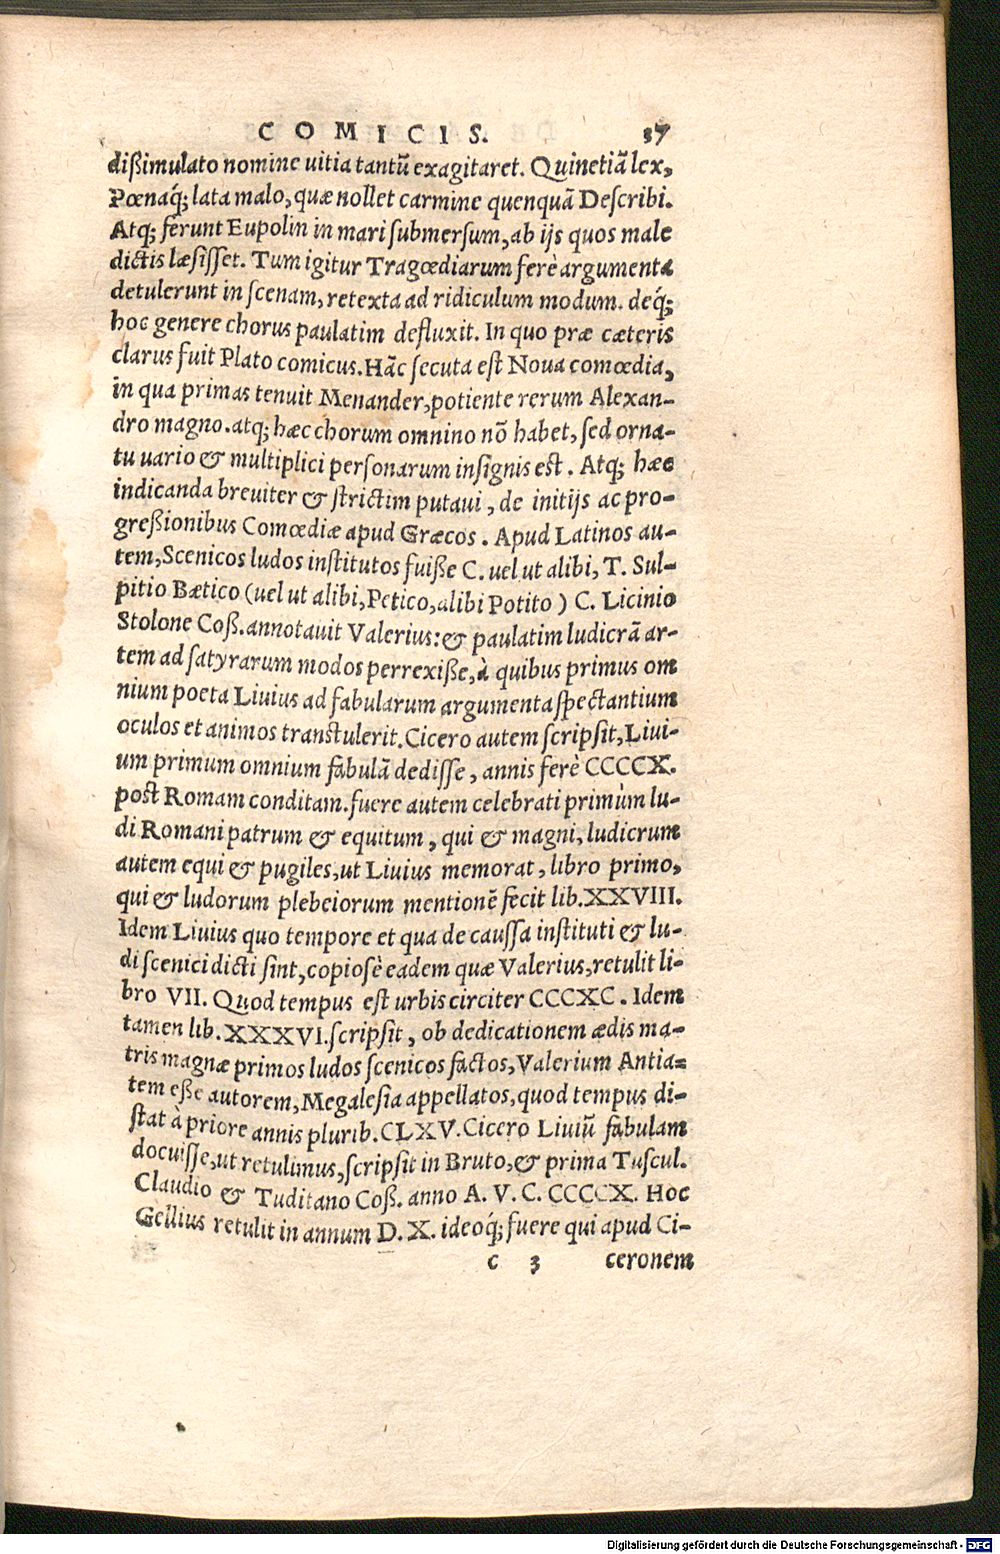 COMICIS. 37
dißimulato nomine uitia tantũ exagitaret. Quinetiã lex,
Pœnaq́; lata malo, quæ nollet carmine quenquã Describi.
Atq; ferunt Eupolin in mari submersum, ab ijs quos male
dictis læsisset. Tum igitur Tragœdiarum ferè argumenta
detulerunt in scenam, retexta ad ridiculum modum. deq́;
hoc genere chorus paulatim defluxit. In quo præ cæteris
clarus fuit Plato comicus. Hãc secuta est Noua comœdia,
in qua primas tenuit Menander, potiente rerum Alexan-
dro magno. atq; hæc chorum omnino nõ habet, sed orna-
tu uario & multiplici personarum insignis est. Atq; hæc
indicanda breuiter & strictim putaui, de initijs ac pro-
greßionibus Comœdiæ apud Græcos. Apud Latinos au-
tem, Scenicos ludos institutos fuiße C. uel ut alibi, T. Sul-
pitio Bætico (uel ut alibi, Petico, alibi Potito) C. Licinio
Stolone Coß. annotauit Valerius: & paulatim ludicrã ar-
tem ad satyrarum modos perrexiße, à quibus primus om
nium poeta Liuius ad fabularum argumenta spectantium
oculos et animos transtulerit. Cicero autem scripsit, Liui-
um primum omnium fabulã dedisse, annis ferè CCCCX.
post Romam conditam. fuere autem celebrati primùm lu-
di Romani patrum & equitum, qui & magni, ludicrum
autem equi & pugiles, ut Liuius memorat, libro primo,
qui & ludorum plebeiorum mentionẽ fecit lib. XXVIII.
Idem Liuius quo tempore et qua de caussa instituti & lu-
di scenici dicti sint, copiosè eadem quæ Valerius, retulit li-
bro VII. Quod tempus est urbis circiter CCCXC. Idem
tamen lib. XXXVI. scripsit, ob dedicationem ædis ma-
tris magnæ primos ludos scenicos factos, Valerium Antia-
tem eße autorem, Megalesia appellatos, quod tempus di-
stat à priore annis plurib. CLXV. Cicero Liuiũ fabulam
docuisse, ut retulimus, scripsit in Bruto, & prima Tuscul.
Claudio & Tuditano Coß. anno A. V. C. CCCCX. Hoc
Gellius retulit in annum D. X. ideoq́; fuere qui apud Ci-
c 3 ceronem
Digitalisierung gefördert durch die Deutsche Forschungsgemeinschaft - DFG